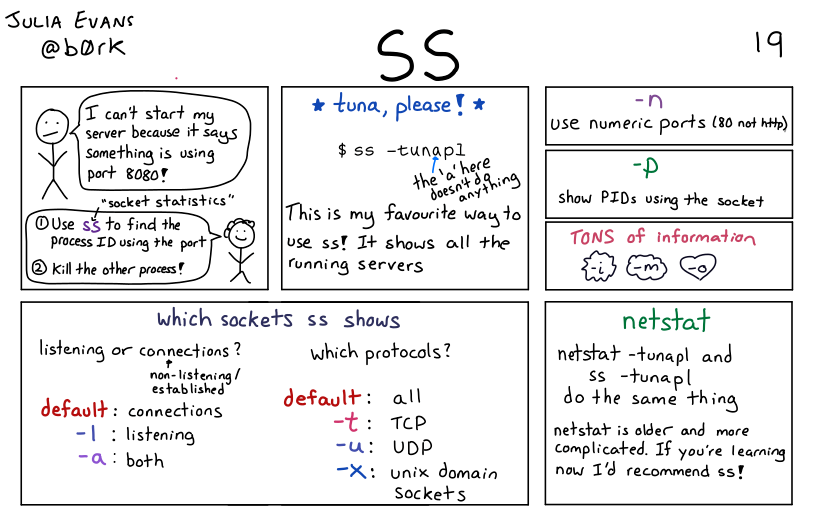 JULIA EVANS
@b0rk
ss
19
I can't start my
server because it says
something is using
port 8080!
"socket statistics"
① Use ss to find the
process ID using the port
② Kill the other process!
★ tuna, please! ★
$ ss -tunapl
the 'a' here
doesn't do
anything
This is my favourite way to
use ss! It shows all the
running servers
-n
use numeric ports (80 not http)
-p
show PIDs using the socket
TONS of information
-i -m -o
which sockets ss shows
listening or connections?
non-listening/
established
default: connections
-l : listening
-a : both
which protocols?
default: all
-t: TCP
-u: UDP
-x: unix domain
sockets
netstat
netstat -tunapl and
ss -tunapl
do the same thing
netstat is older and more
complicated. If you're learning
now I'd recommend ss!